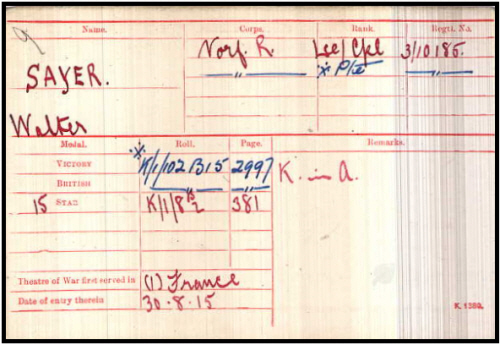 Name. Corps. Rank. Regtl. No.
SAYER. Norf. R. Lce/Cpl 3/10185.
" * Pte "
Walter
Medal. Roll. Page. Remarks.
VICTORY * K/1/102 B15 2997 K. in A.
BRITISH " "
15 STAR K/1/8 B2 381
Theatre of War first served in (1) France
Date of entry therein 30.8.15
K. 1380.